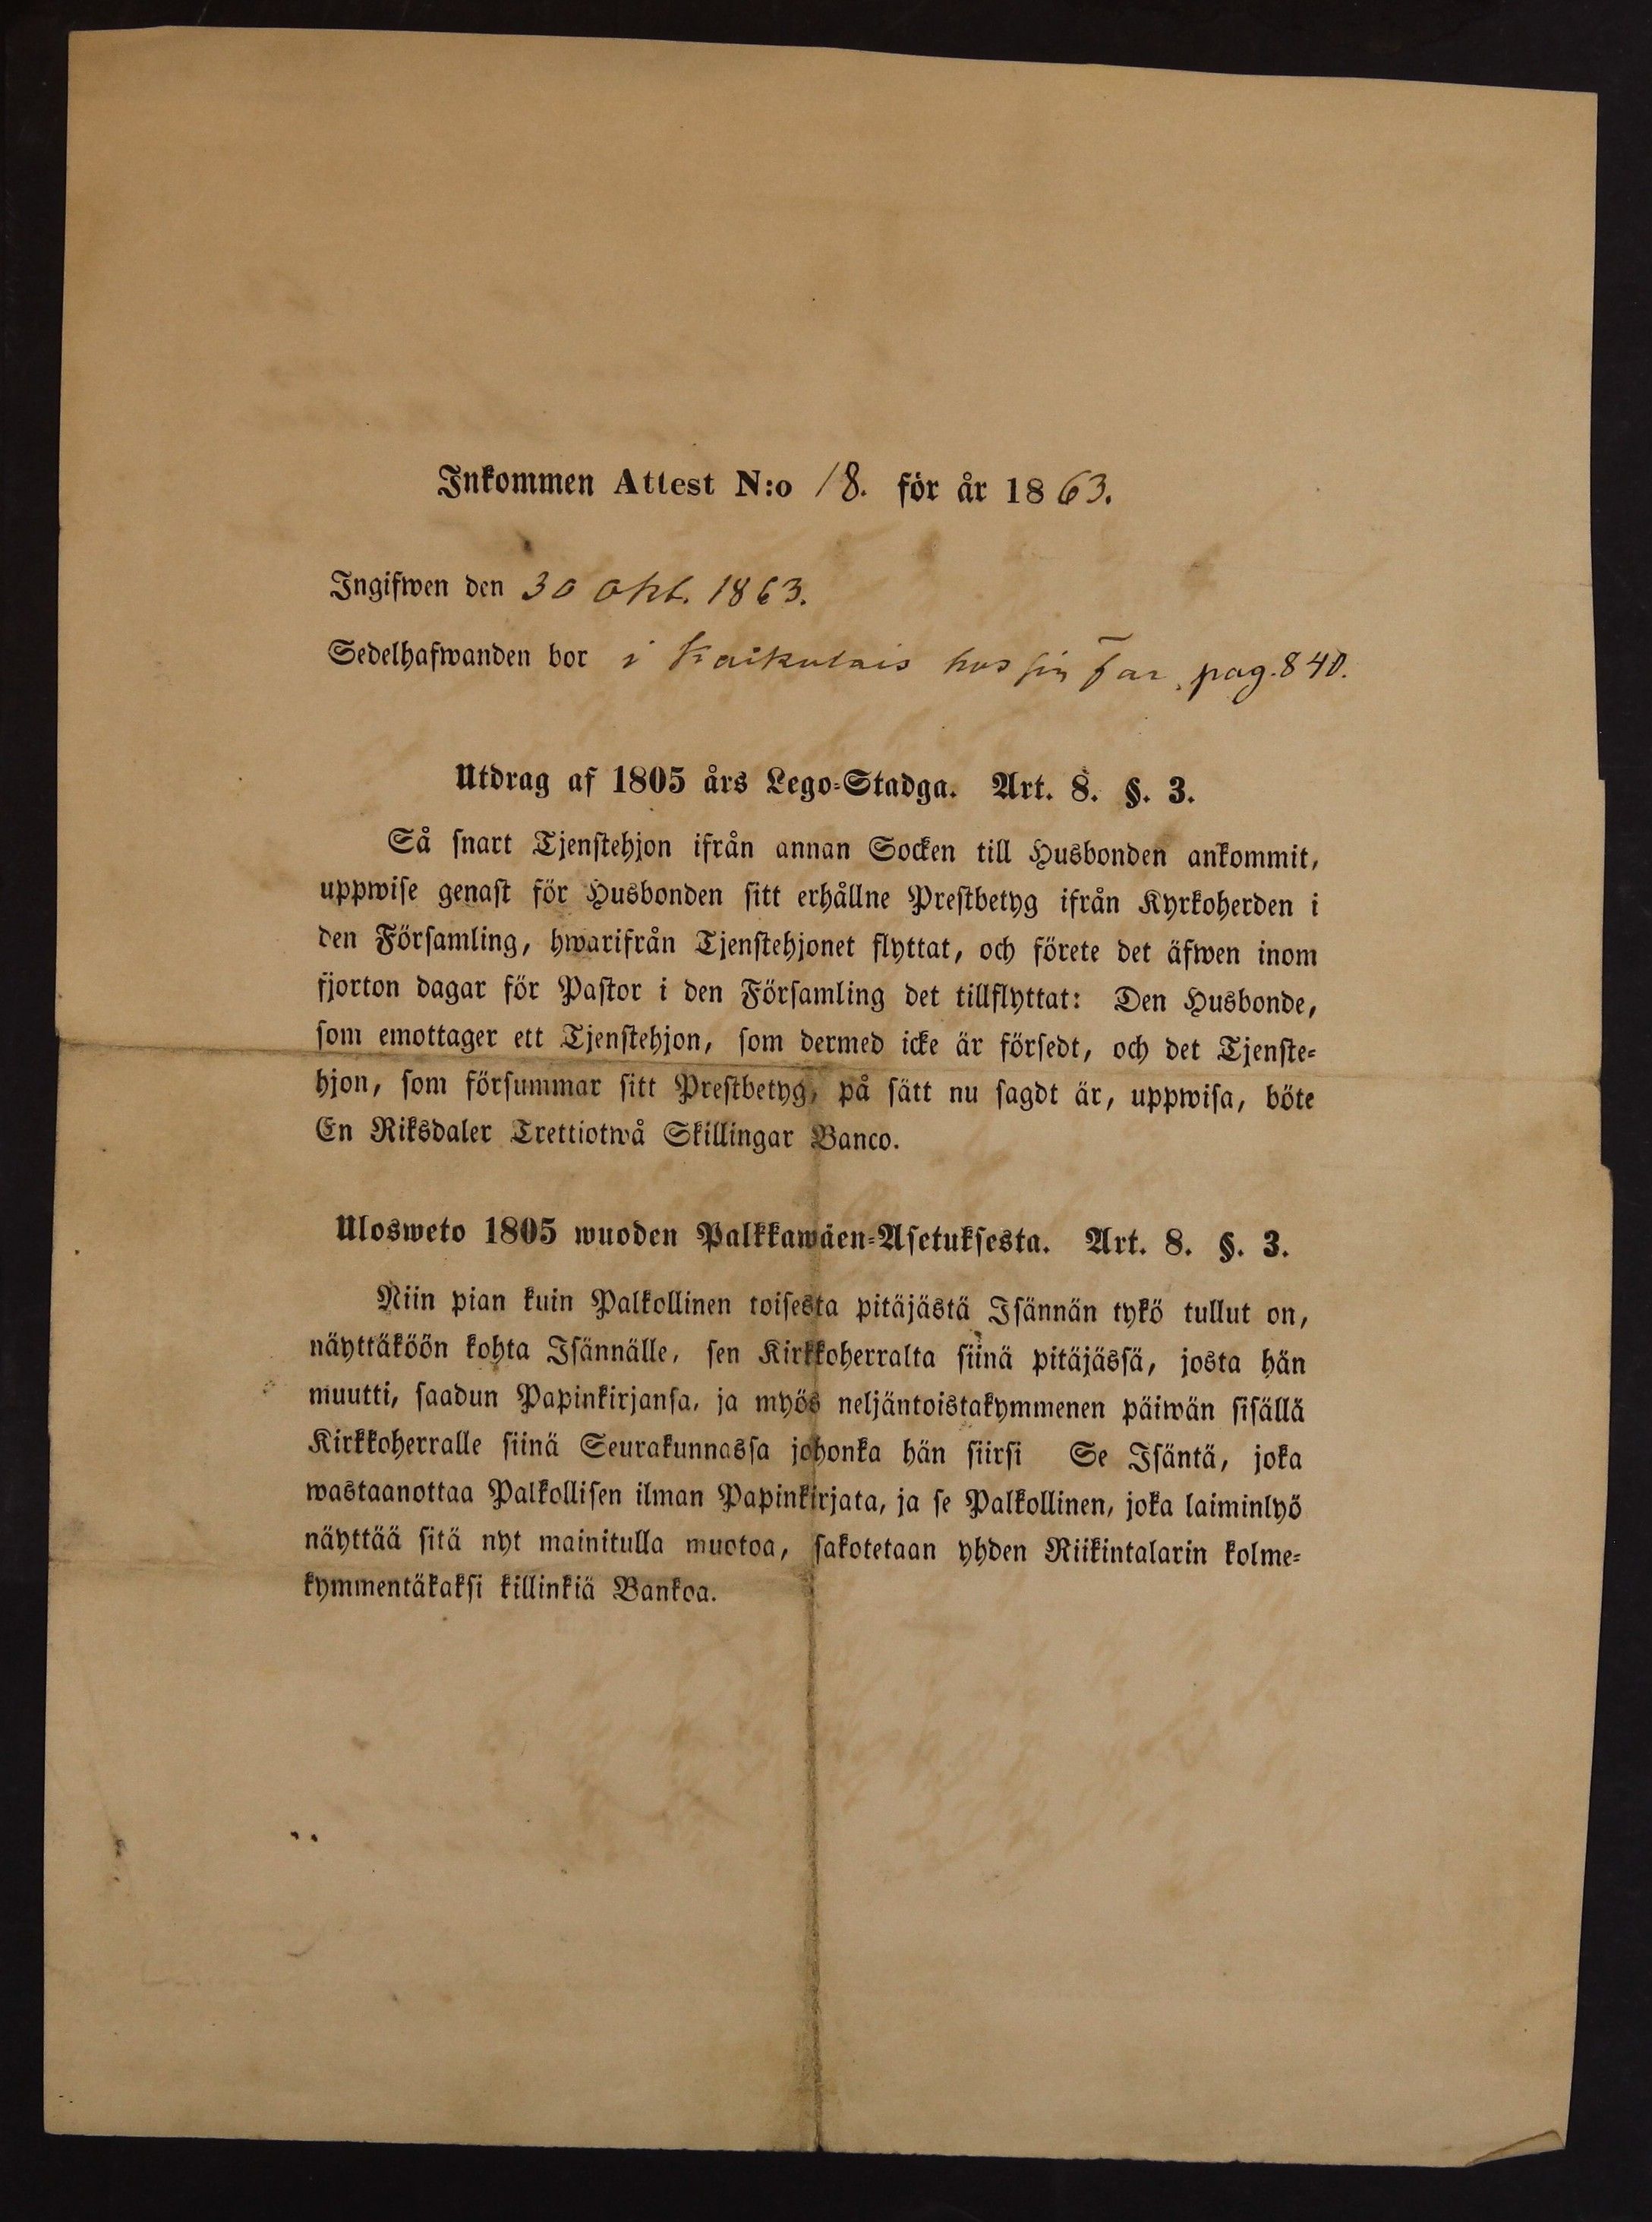 Inkommen Attest N:o 18. för år 1863.
Ingifwen den 30 Okt. 1863.
Sedelhafwanden bor i Kaikulais hos sin Far, pag. 840.
Utdrag af 1805 års Lego-Stadga. Art. 8. §. 3.
Så snart Tjenstehjon ifrån annan Socken till Husbonden ankommit,
uppwise genast för Husbonden sitt erhållne Prestbetyg ifrån Kyrkoherden i
den Församling, hwarifrån Tjenstehjonet flyttat, och förete det äfwen inom
fjorton dagar för Pastor i den Församling det tillflyttat: Den Husbonde,
som emottager ett Tjenstehjon, som dermed icke är försedt, och det Tjenste-
hjon, som försummar sitt Prestbetyg, på sätt nu sagdt är, uppwisa, böte
En Riksdaler Trettiotwå Skillingar Banco.
Ulosweto 1805 wuoden Palkkawäen-Asetuksesta. Art. 8. §. 3.
Niin pian kuin Palkollinen toisesta pitäjästä Isännän tykö tullut on,
näyttäköön kohta Isännälle, sen Kirkkoherralta siinä pitäjässä, josta hän
muutti, saadun Papinkirjansa, ja myös neljäntoistakymmenen päiwän sisällä
Kirkkoherralle siinä Seurakunnassa johonka hän siirsi Se Isäntä, joka
wastaanottaa Palkollisen ilman Papinkirjata, ja se Palkollinen, joka laiminlyö
näyttää sitä nyt mainitulla muotoa, sakotetaan yhden Riikintalarin kolme-
kymmentäkaksi killinkiä Bankoa.